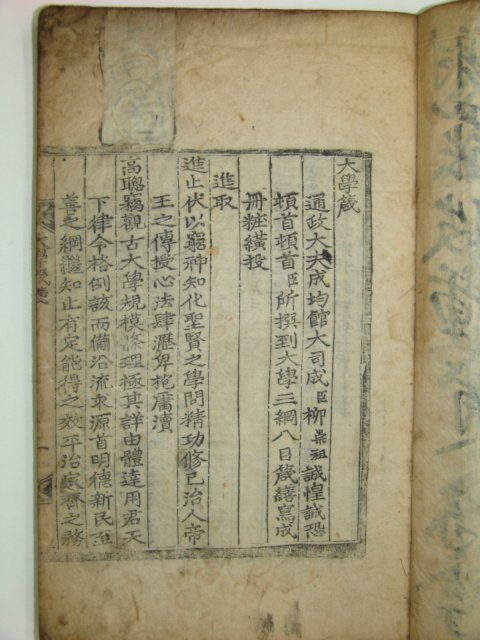 大學箴
通政大夫成均館大司成臣柳崇祖誠惶誠恐
頓首頓首臣所撰到大學三綱八目箴繕寫成
冊粧䌙投
進取
進止伏以窮神知化聖賢之學問精功修己治人帝
王之傳授心法肆瀝卑抱廑瀆
高聰竊觀古大學規模條理極其詳由體達用君天
下律令格例該而備沿流求源首明德新民至
善之綱繼知止有定能得之效平治家齊之務